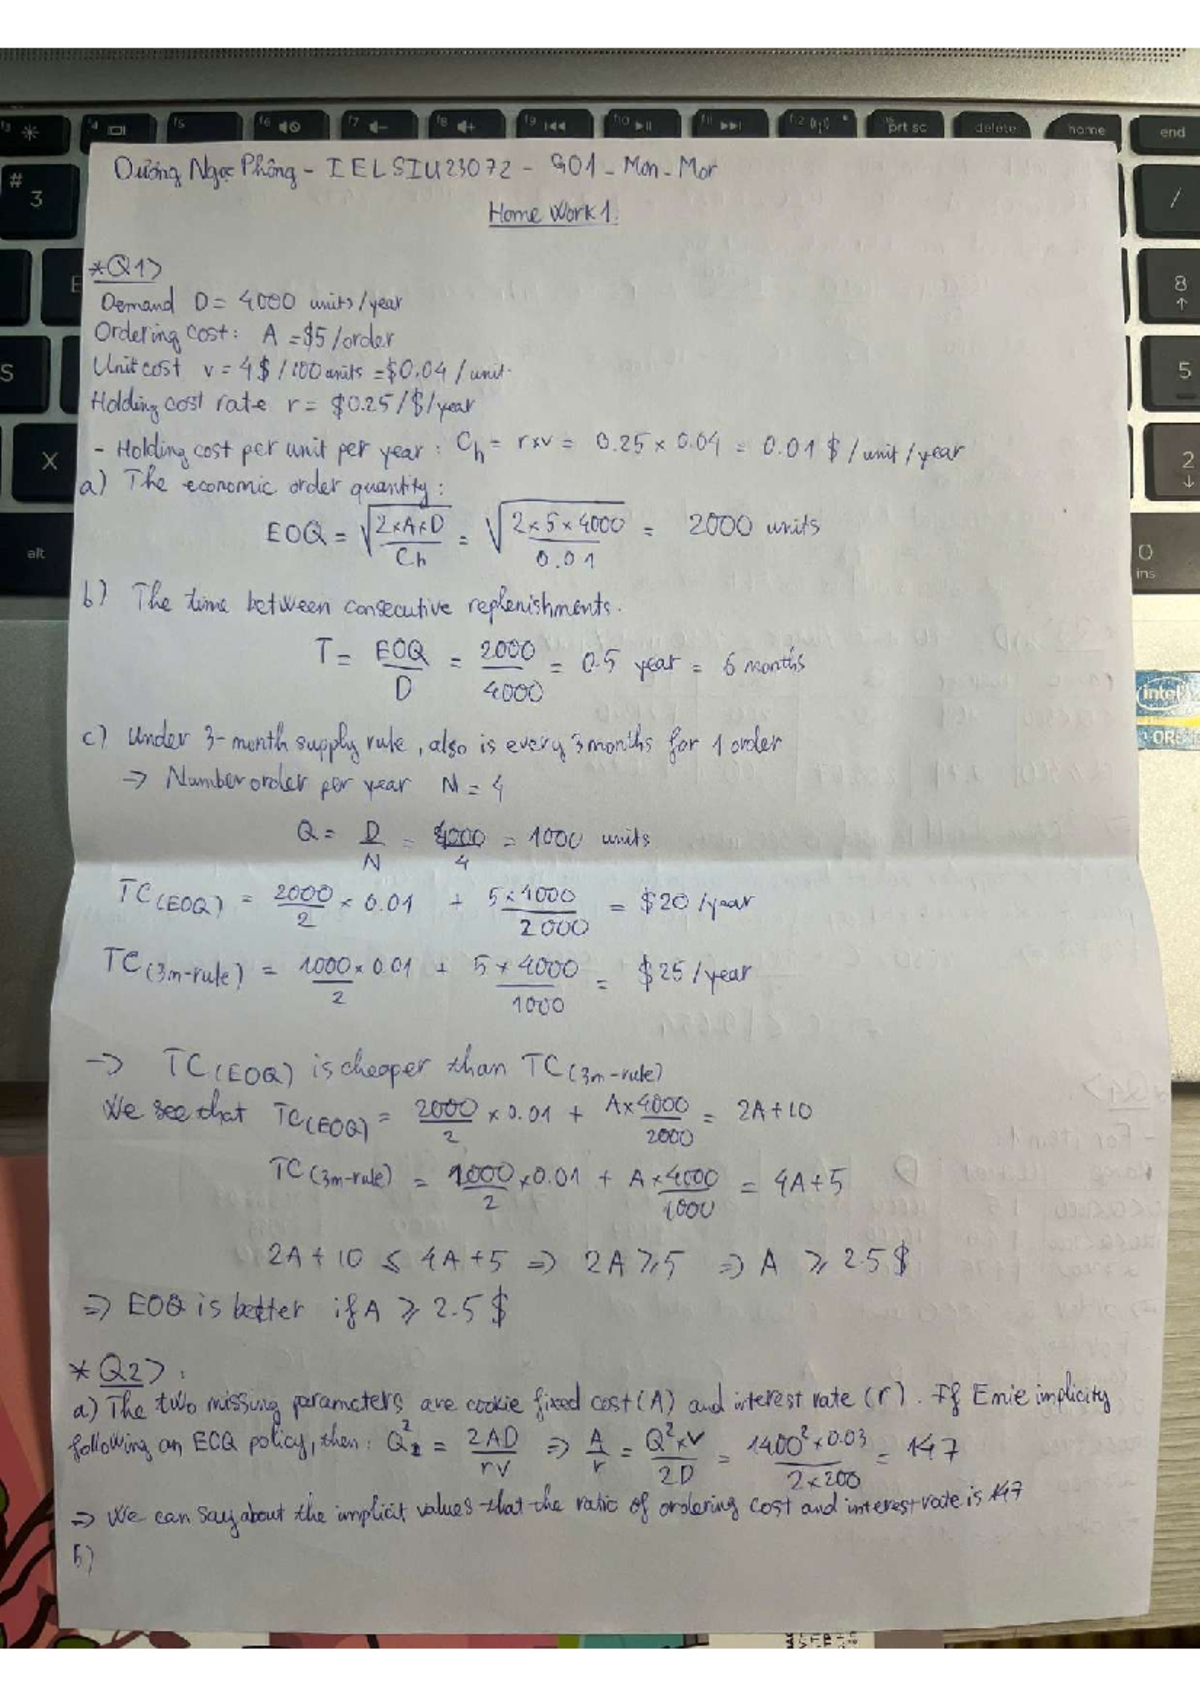 Dương Ngọc Phông - IELSIU23072 - G01 - Mon - Mor
Home Work 1.
*Q1>
Demand D = 4000 units/year
Ordering cost: A = $5/order
Unit cost v = 4$/100 units = $0.04/unit.
Holding cost rate r = $0.25/$/year
- Holding cost per unit per year: Ch = r×v = 0.25 × 0.04 = 0.01 $/unit/year
a) The economic order quantity:
EOQ = √(2×A×D / Ch) = √(2×5×4000 / 0.01) = 2000 units
b) The time between consecutive replenishments.
T = EOQ / D = 2000 / 4000 = 0.5 year = 6 months
c) Under 3-month supply rule, also is every 3 months for 1 order
⇒ Number order per year N = 4
Q = D / N = 4000 / 4 = 1000 units
TC(EOQ) = 2000 / 2 × 0.01 + 5×4000 / 2000 = $20/year
TC(3m-rule) = 1000×0.01 / 2 + 5×4000 / 1000 = $25/year
→ TC(EOQ) is cheaper than TC(3m-rule)
We see that TC(EOQ) = 2000 / 2 × 0.01 + A×4000 / 2000 = 2A+10
TC(3m-rule) = 1000 / 2 × 0.01 + A×4000 / 1000 = 4A+5
2A+10 ≤ 4A+5 ⇒ 2A ≥ 5 ⇒ A ≥ 2.5$
⇒ EOQ is better if A ≥ 2.5$
*Q2>:
a) The two missing parameters are cookie fixed cost (A) and interest rate (r). If Emie implicity
following an EOQ policy, then: Q² = 2AD / rv ⇒ A / r = Q²×v / 2D = 1400²×0.03 / 2×200 = 147
⇒ We can say about the implicit values that the ratio of ordering cost and interest rate is 147
b)
f4
f5
f6
f7
f8
f9
f10
f11
f12
prt sc
delete
home
end
#
3
E
S
X
alt
/
8
5
2
0
ins
intel